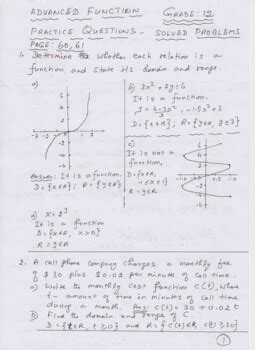 ADVANCED FUNCTION GRADE: 12
PRACTICE QUESTIONS. SOLVED PROBLEMS
PAGE: 60, 61
1. Determine whether each relation is a
function and state its domain and range.
a)
b) 3x² + 2y = 6
It is a function.
y = 6-3x²/2 = -1.5x² + 3
D = {x∈R}; R = {y∈R, y≤3}
c)
It is not a
function.
D = {x∈R,
-1≤x≤1}
R = y∈R
Answer: It is a function.
D = {x∈R}; R = {y∈R}
d) x = 2^y
It is a function
D = {x∈R, x>0}
R = y∈R
2. A cell phone company charges a monthly fee
of $30 plus $0.02 per minute of call time.
a) Write the monthly cost function C(t), where
t - amount of time in minutes of call time
during a month. Ans: C(t) = 30 + 0.02 t
b) Find the domain and range of C.
D = {t∈R, t≥0} and R = {C(t)∈R, C(t)≥30}
1